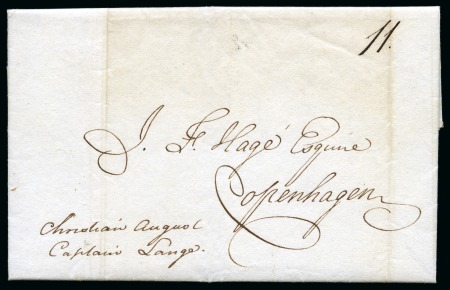 11.
J. F. Hagé Esquire
Copenhagen
Christian August
Captain Lange.